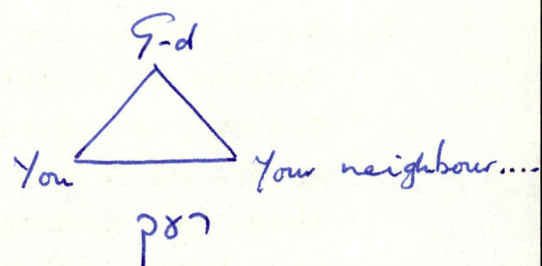 G-d
You
Your neighbour....
רעך